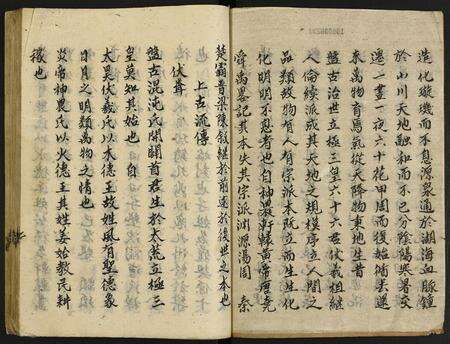 造化璇璣而不息源裂通於湖海血脉鍾
於山川天地融和而不已分陰陽與寒交
還一晝一夜六十花甲周而復始循去還
來萬物育焉氣從天降物東地生昔
盤古治世立極三皇六十六君伏羲祖繼
人倫續派或其天地之規模序立人間之
品類故物有人有宗派本既立而生生化
化明明不忍者也自神農軒轅黃帝歷堯
舜禹畧記其本失共宗派渊源湯周 秦
楚霸晉梁陳敘繼於前述於後世之本也
上古流傳
伏羲
盤古混沌氏開闢首君生於太荒立極三
皇莫知其始也 自
太昊伏羲氏以木德王故姓風有聖德象
日月之明類萬物之情也
炎帝神農氏以火德王其姓姜始教民耕
稼也